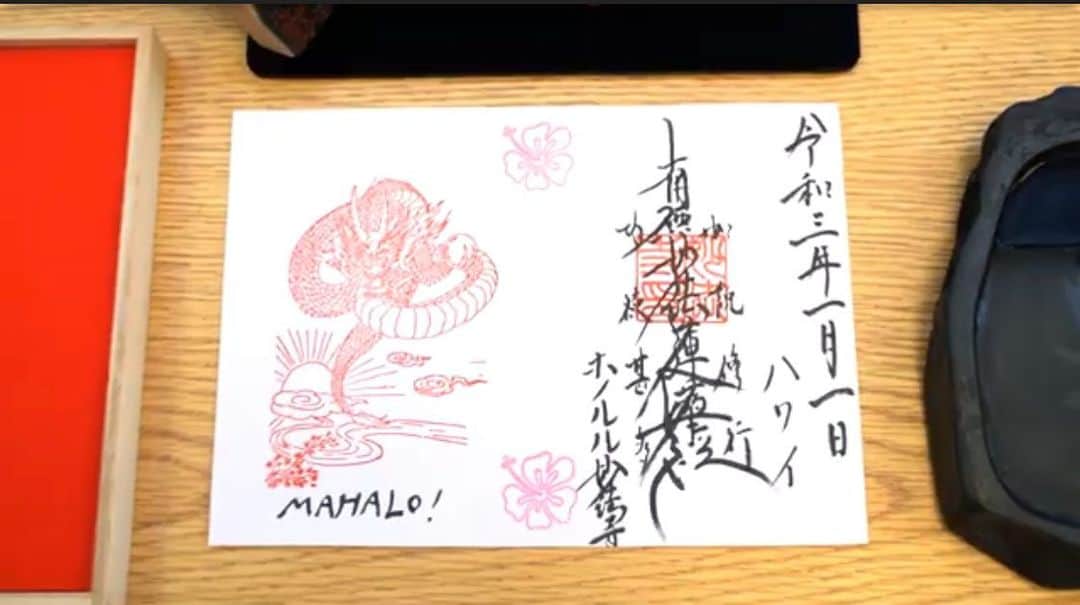 令和三年一月一日
ハワイ
修行
南無妙法蓮華経
ホノルル妙法寺
MAHALO!